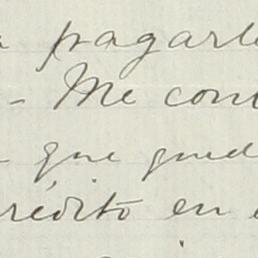 pagarl
- Me con
que qued
rédito en